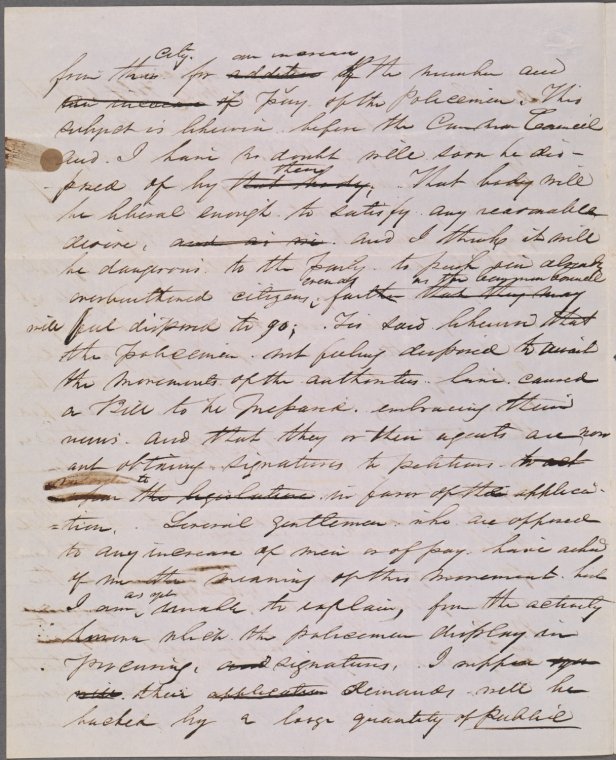 city. an increase
from this for addition of the number and
an increase of pay of the Policemen. This
subject is likewise before the Common Council
and I have no doubt will soon be dis-
-posed of by that body. them That body will
be liberal enough to satisfy any reasonable
desire, and I think it will
be dangerous to the party to push our already
overburthened citizens, even as far as the Common Council
further that they may
will feel disposed to go; Tis said likewise that
the Policemen not feeling disposed to await
the movements of the authorities have caused
a Bill to be prepared embracing their
views and that they or their agents are now
out obtaining signatures to petitions to act
to the legislature in favor of the applica-
=tion. Several gentlemen who are opposed
to any increase of men or of pay have asked
of me the meaning of this movement but
I am as yet unable to explain, from the activity
which the policemen display in
procuring, and signatures, I suppose you
will their application demands will be
backed by a large quantity of public